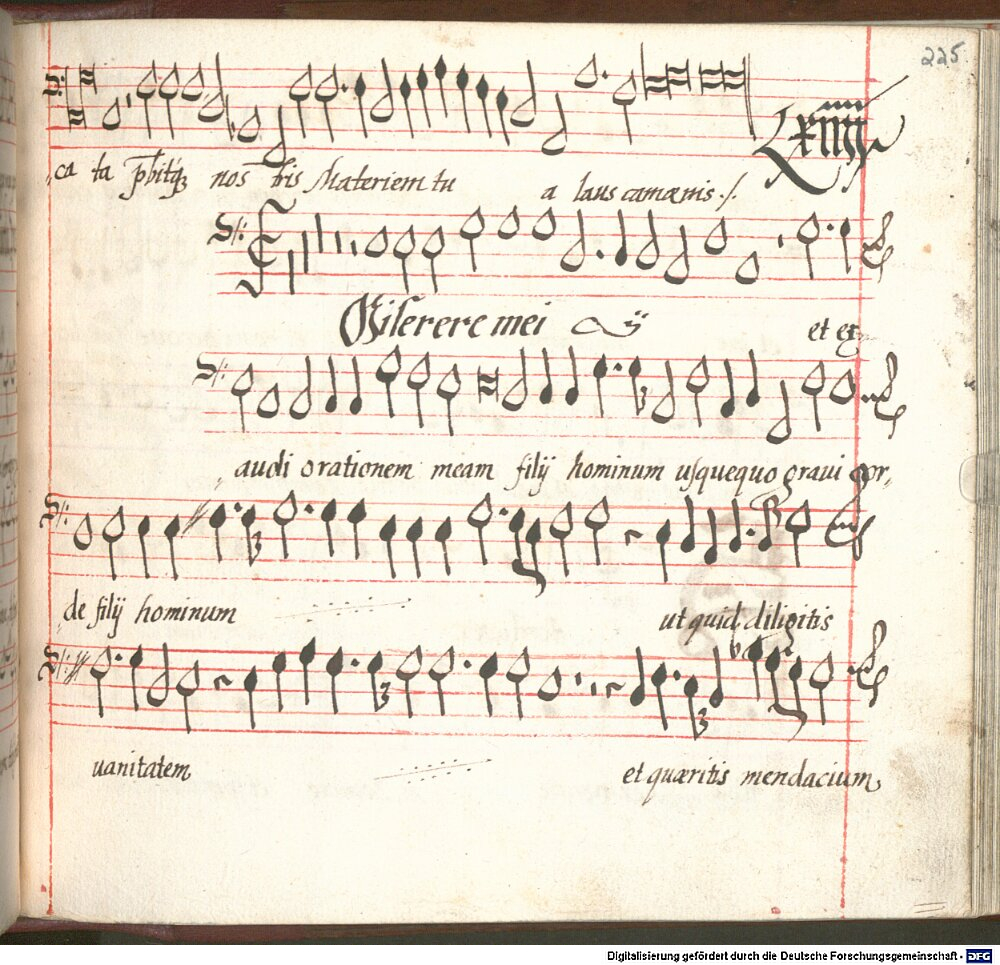 225
ca ta nos tris Materiem tu a laus camænis ./.
Lxiiii
Miserere mei ij et ex
audi orationem meam filij hominum usquequo graui cor,
de filij hominum ut quid diligitis
uanitatem et quæritis mendacium,
Digitalisierung gefördert durch die Deutsche Forschungsgemeinschaft - DFG